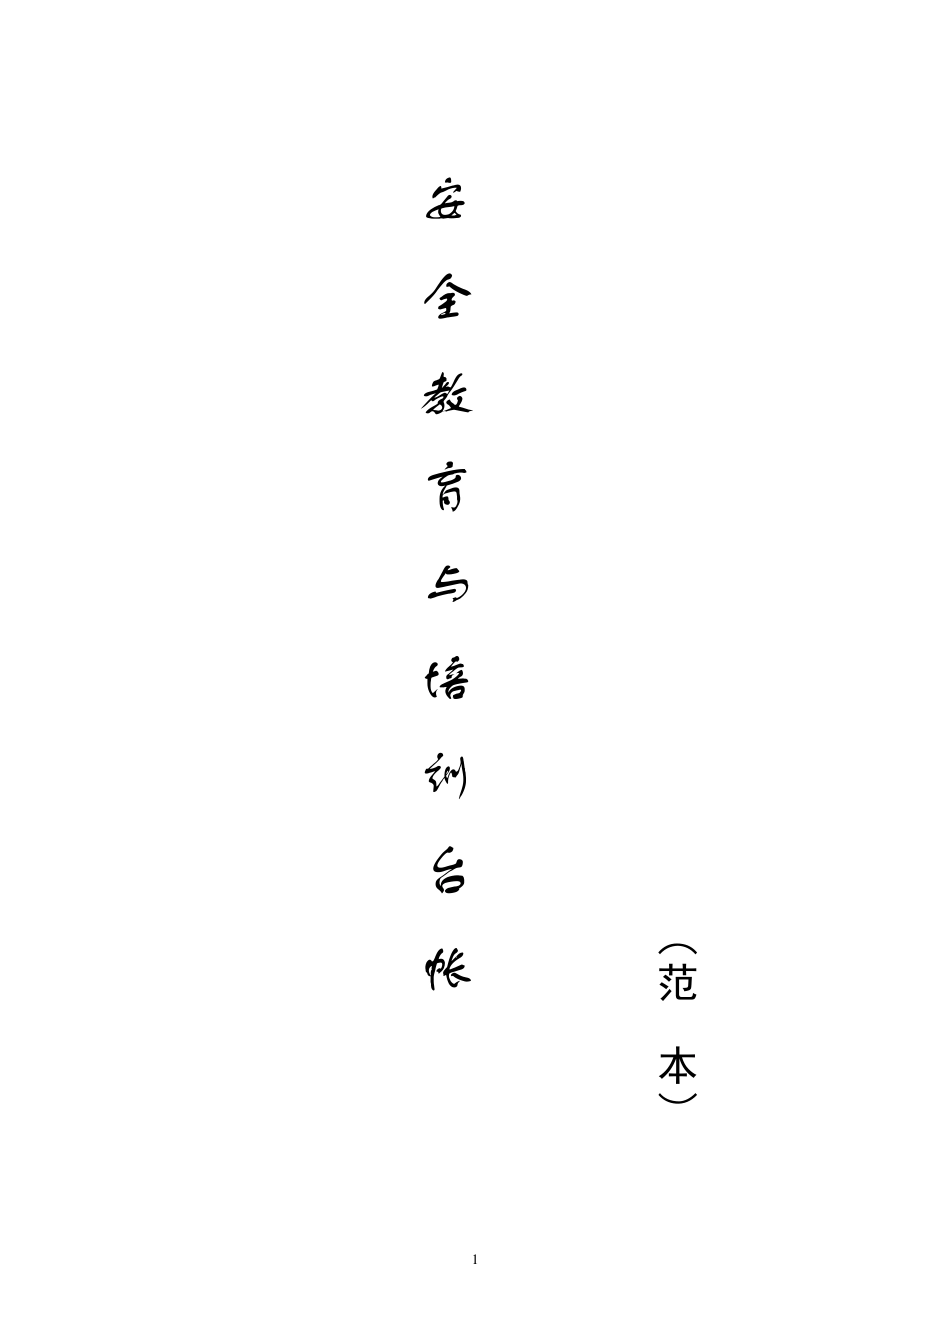 安全教育与培训台帐
（范本）
1